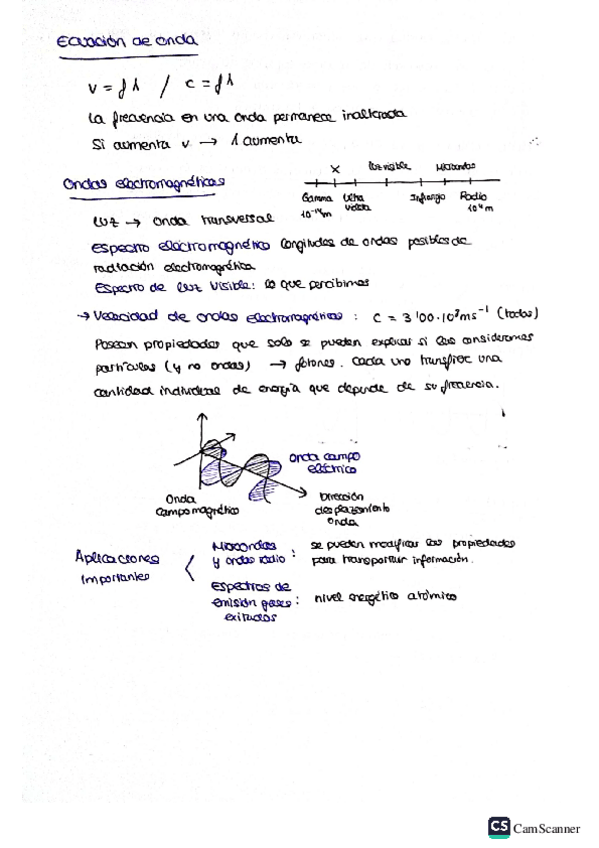 Ecuación de onda
v = f λ / c = f λ
La frecuencia en una onda permanece inalterada
Si aumenta v → λ aumenta
Ondas electromagnéticas
X luz visible Microondas
Gamma Ultra Infrarrojo Radio
10⁻¹⁴m violeta 10⁴m
LUZ → onda transversal
Espectro electromagnético longitudes de ondas posibles de
radiación electromagnética
Espectro de luz visible: lo que percibimos
→ Velocidad de ondas electromagnéticas : c = 3'00·10⁸ms⁻¹ (todas)
Poseen propiedades que solo se pueden explicar si las consideramos
partículas (y no ondas) → fotones. Cada uno transfiere una
cantidad individual de energía que depende de su frecuencia.
onda campo
eléctrico
Onda
campo magnético
Dirección
desplazamiento
onda
Aplicaciones
importantes
Microondas
y ondas radio :
se pueden modificar las propiedades
para transportar información.
Espectros de
emisión gases :
exitados
nivel energético atómico
CS CamScanner